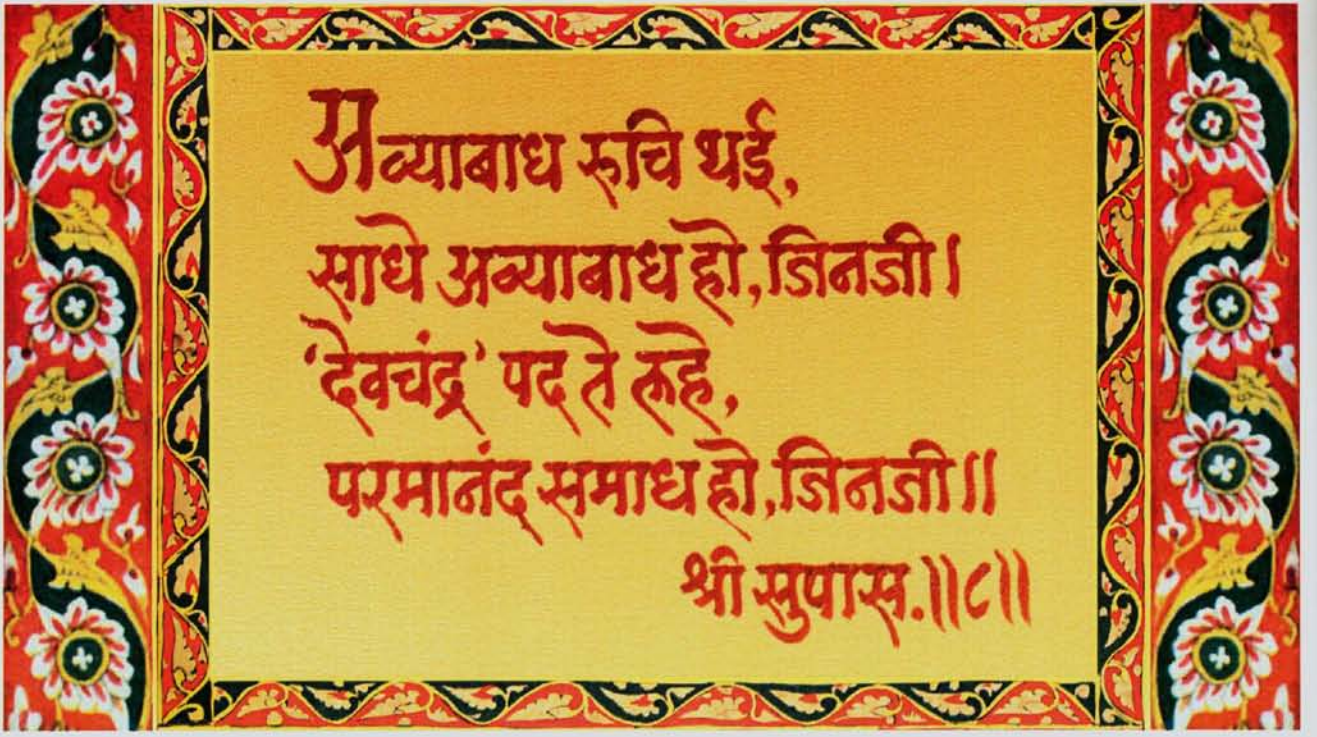 अव्याबाध रुचि थई,
साधे अव्याबाध हो, जिनजी।
‘देवचंद्र’ पद ते लहे,
परमानंद समाध हो, जिनजी॥
श्री सुपास.॥८॥